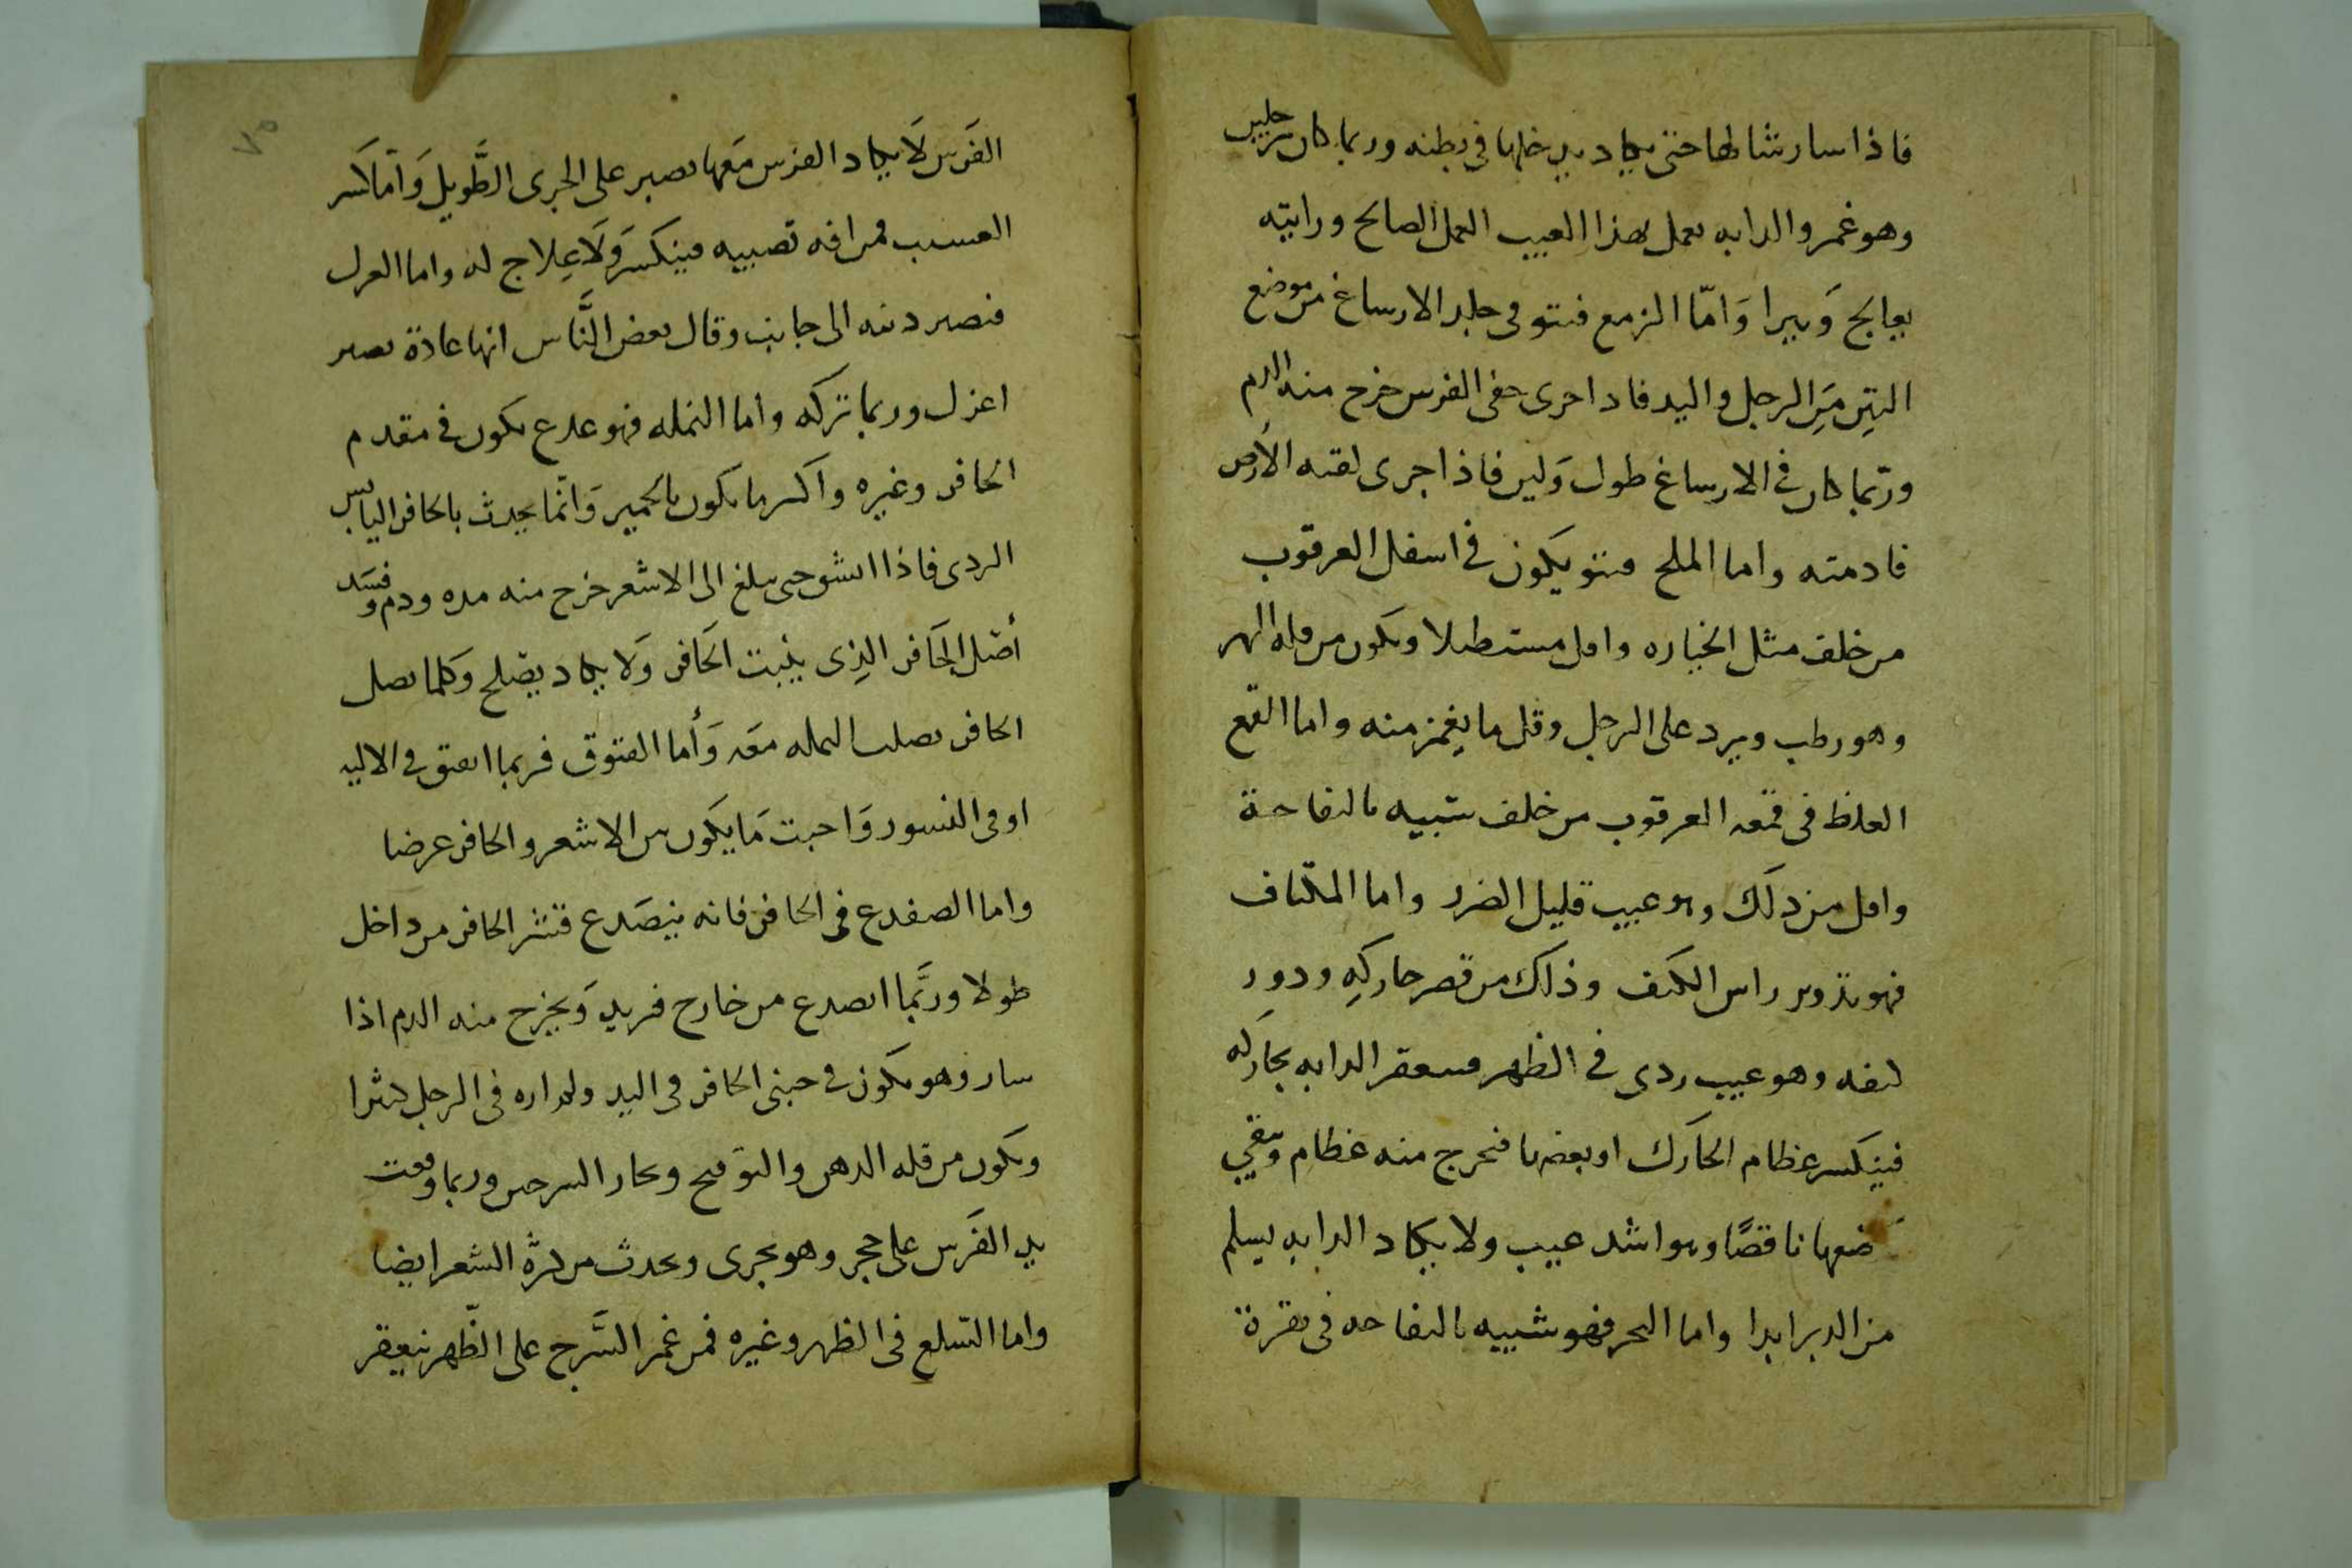 فاذا سار شالها حتى يكاد يدخلها فى بطنه وربما كان برجلين
وهو غمر والدابه يعمل بهذا العيب العمل الصالح ورايته
يعالج وَيبرا وَامّا الزمع فنتو فى جلد الارساغ من موضع
التِين مِن الرجل واليد فاذا جرى حفى الفرس خرج منه الدم
وربّما كان فى الارساغ طول وَلين فاذا جرى لقته الأرض
فادمته واما الملح فنتو يكون فى اسفل العرقوب
من خلف مثل الخياره واقل مستطيلا ويكون من قله
وهو رطب ويرد على الرجل وقل ما يغمز منه واما القمع
الغلظ فى قمعه العرقوب من خلف شبيه بالتفاحة
واقل من ذلك وهو عيب قليل الضرر واما المكتاف
فهو تدوير راس الكتف وذلك من قصر حاركهِ ودور
كتفه وهو عيب ردى فى الظهر فيعقر الدابه بحاركه
فينكسر عظام الحارك او بعضها فتخرج منه عظام ويبقي
ناقصًا وهو اشد عيب ولا يكاد الدابه يسلم
من الدبر ابدا واما البجر فهو شبيه بالتفاحه فى نقرة
الفَرس لَا يكاد الفرس مَعها يصبر على الجرى الطَّويل وَامّا كسر
العسيب فمن افه تصيبه فينكسَر وَلَا عِلاج له واما العزل
فتصير ذنبه الى جانب وقال بعض النَّاس انها عادة يصير
اعزل وربما تركه واما النمله فهو صدع يكون فى مقدم
الحافر وغيره واكثر ما يكون بالحمير وَانّما يحدث بالحافر اليابس
الردى فاذا انشق حتى يبلغ الى الاشعر خرج منه مده ودم وفسَد
أصْل الحَافر الذِى ينبت الحَافر وَلا يكاد يصْلح وَكلما يصل
الحافر يصلب النمله معَه وَأما الفتوق فربما انفتق فى الاليه
او فى النسور وَاخبث مَا يكوَن بين الاشعر والحافر عرضا
واما الصفدع فى الحافر فانه ينصَدع قشر الحافر من داخل
طولا وربَّما انصدع من خارج فريد وَيخرج منه الدم اذا
سار وهو يكون فى جنبى الحافر فى اليد ولمداره فى الرجل كثرا
ويكون من قله الدهن والتوقيح وبخار السرجين وربما وقعت
يد الفَرس على حجر وهو يجرى ويحدث من كثرة الشعر ايضا
واما السّلع فى الظهر وغيره فمن غمر السَّرج على الظّهر ينعقر